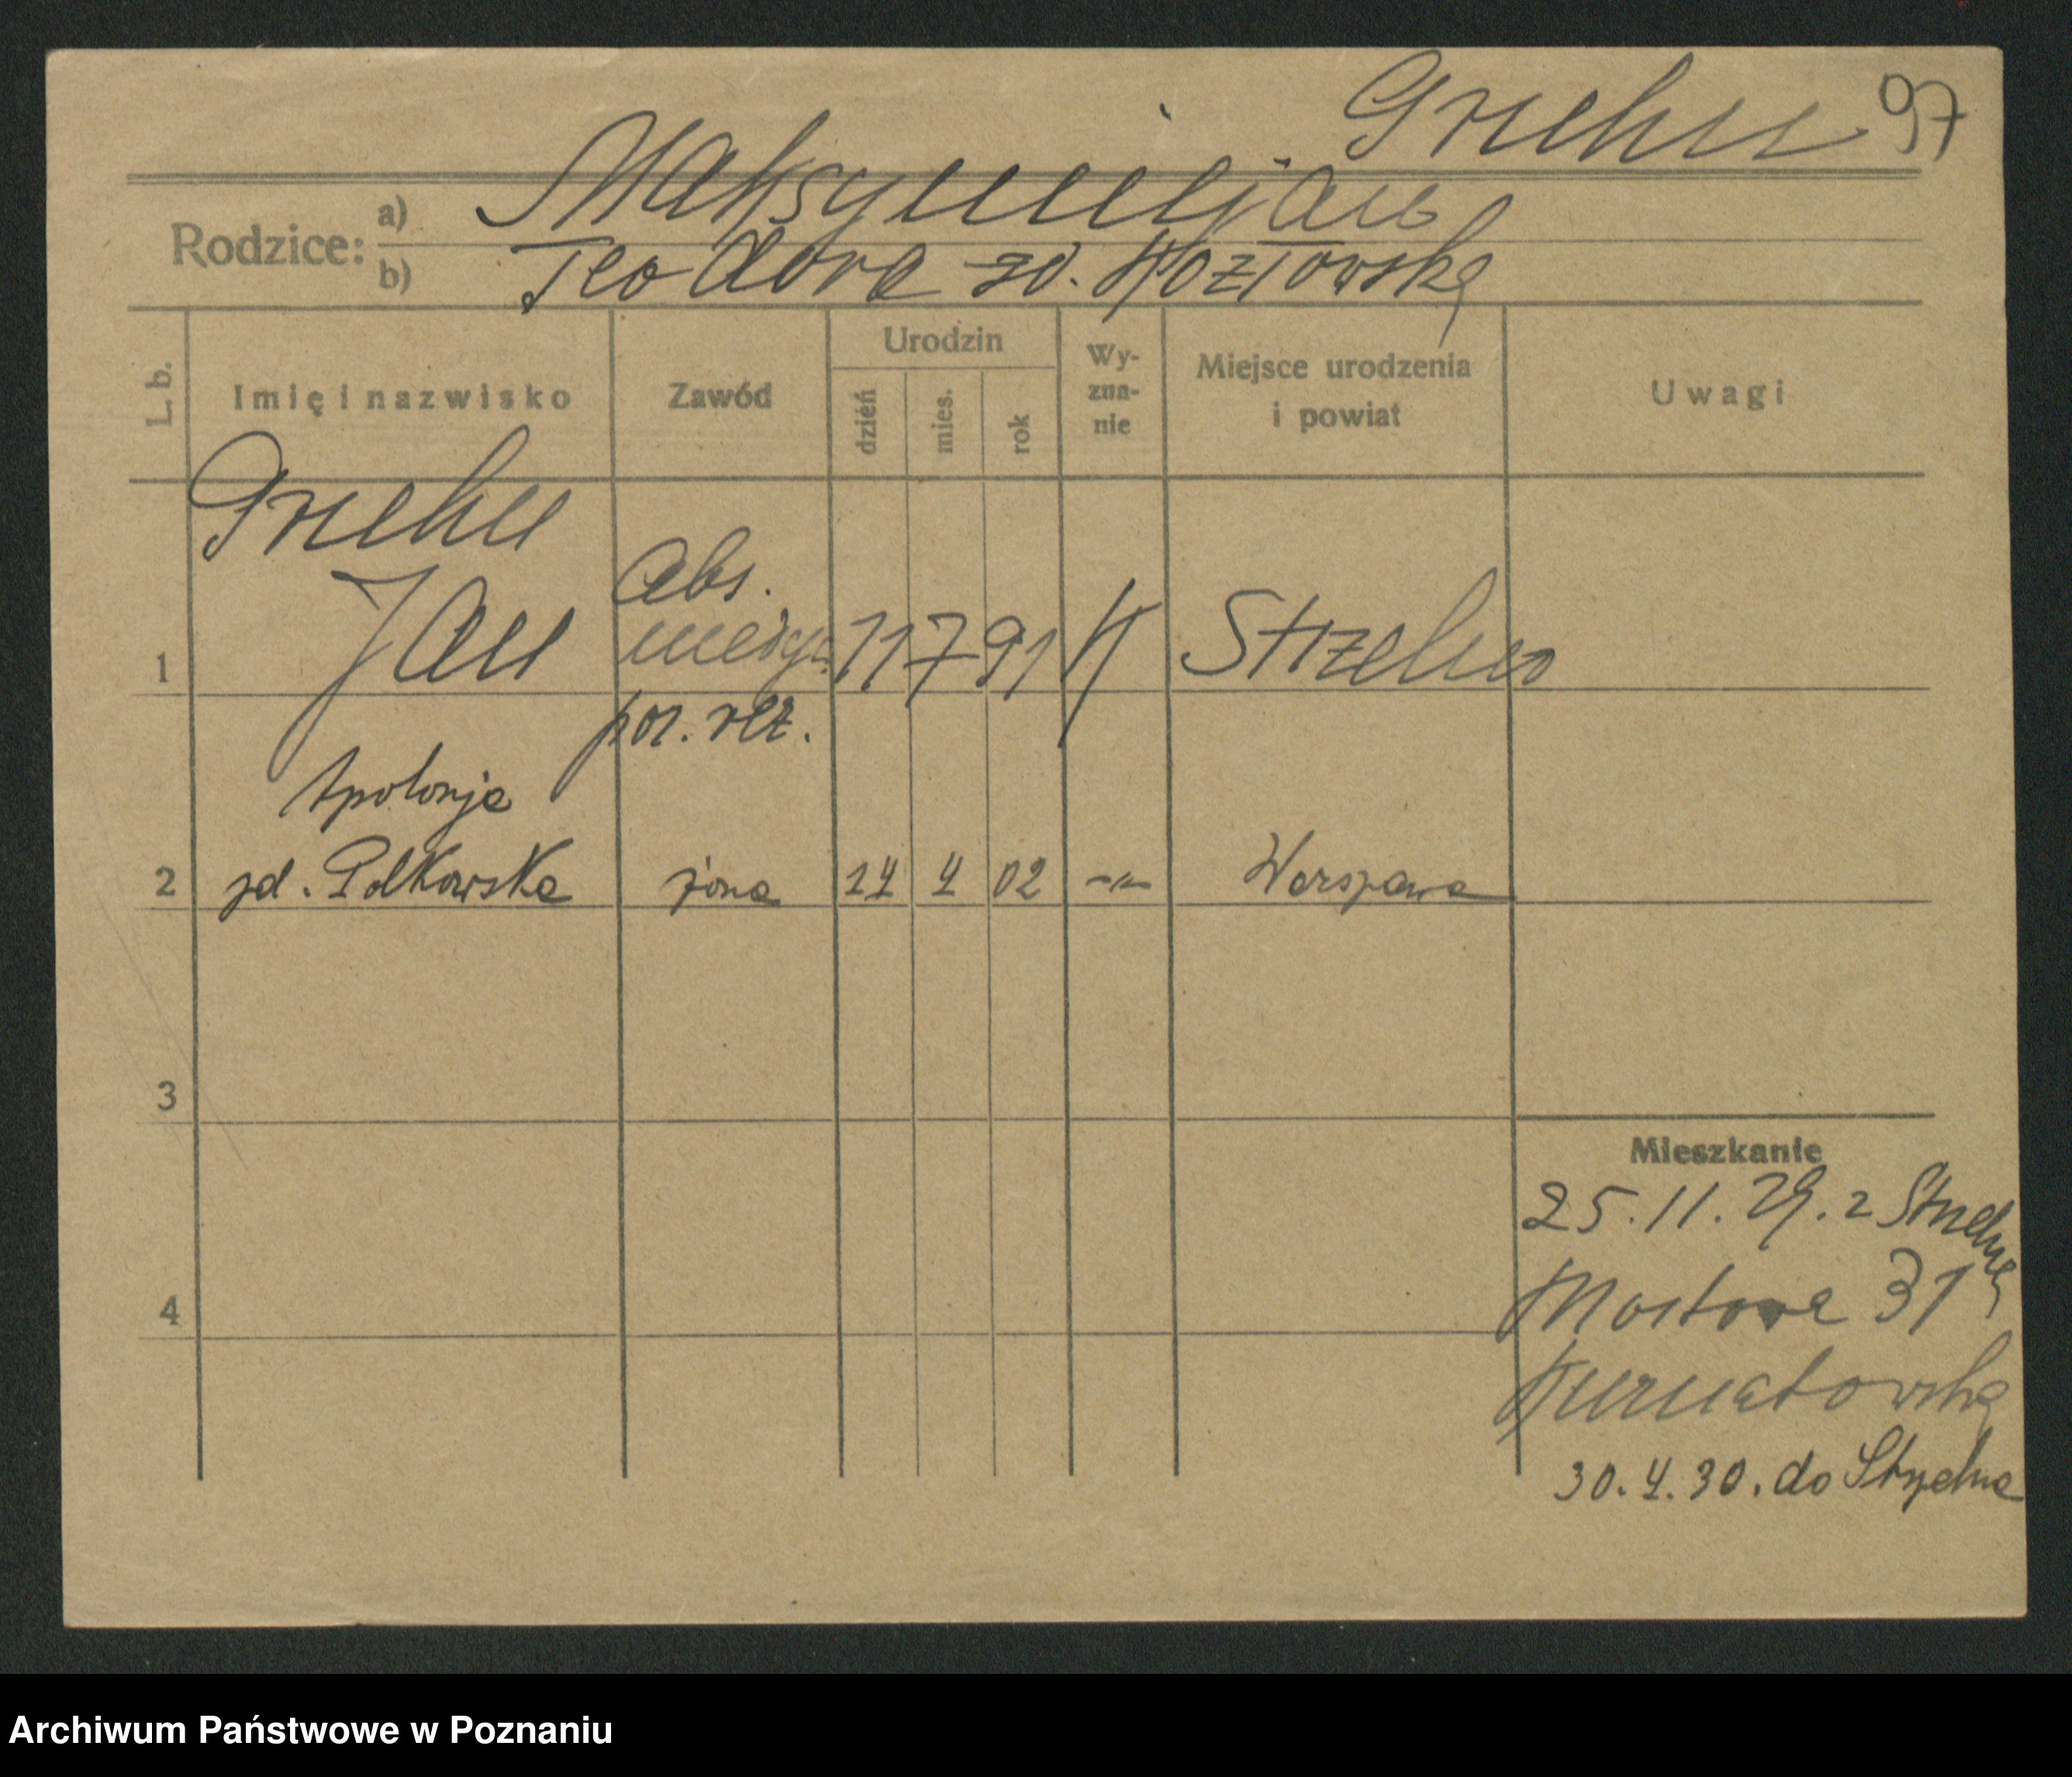 Gruehn 97
Rodzice:
a) Maksymiljan
b) Teodora zd. Kozłowska
L. b.
Imię i nazwisko
Zawód
Urodzin
dzień
mies.
rok
Wy-
zna-
nie
Miejsce urodzenia
i powiat
Uwagi
Abs.
1 Jan 11 7 91 K Strzelno
por. rez.
Apolonja
2 zd. Polkowska żona 14 4 02 -"- Warszawa
3
4
Mieszkanie
25.11.29. z Strzelna
Mostowa 31
Kurnatowska
30.4.30. do Strzelna
Archiwum Państwowe w Poznaniu